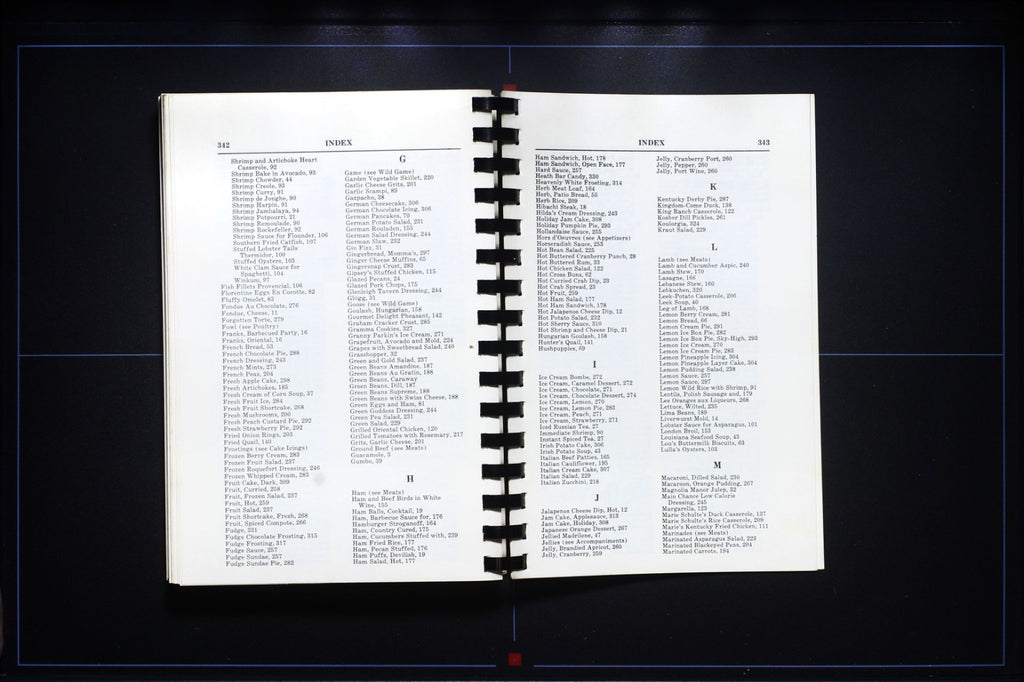 342
INDEX
Shrimp and Artichoke Heart
Casserole, 92
Shrimp Bake in Avocado, 93
Shrimp Chowder, 44
Shrimp Creole, 93
Shrimp Curry, 91
Shrimp de Jonghe, 90
Shrimp Harpin, 91
Shrimp Jambalaya, 94
Shrimp Potpourri, 21
Shrimp Remoulade, 90
Shrimp Rockefeller, 92
Shrimp Sauce for Flounder, 106
Southern Fried Catfish, 107
Stuffed Lobster Tails
Thermidor, 100
Stuffed Oysters, 103
White Clam Sauce for
Spaghetti, 104
Winkum, 97
Fish Fillets Provencial, 106
Florentine Eggs En Cocotte, 82
Fluffy Omelet, 83
Fondue Au Chocolate, 276
Fondue, Cheese, 11
Forgotten Torte, 279
Fowl (see Poultry)
Franks, Barbecued Party, 16
Franks, Oriental, 16
French Bread, 53
French Chocolate Pie, 288
French Dressing, 243
French Mints, 273
French Peas, 204
Fresh Apple Cake, 298
Fresh Artichokes, 185
Fresh Cream of Corn Soup, 37
Fresh Fruit Ice, 284
Fresh Fruit Shortcake, 268
Fresh Mushrooms, 200
Fresh Peach Custard Pie, 292
Fresh Strawberry Pie, 292
Fried Onion Rings, 203
Fried Quail, 140
Frostings (see Cake Icings)
Frozen Berry Cream, 283
Frozen Fruit Salad, 237
Frozen Roquefort Dressing, 246
Frozen Whipped Cream, 282
Fruit Cake, Dark, 309
Fruit, Curried, 258
Fruit, Frozen Salad, 237
Fruit, Hot, 259
Fruit Salad, 237
Fruit Shortcake, Fresh, 268
Fruit, Spiced Compote, 266
Fudge, 331
Fudge Chocolate Frosting, 315
Fudge Frosting, 317
Fudge Sauce, 257
Fudge Sundae, 257
Fudge Sundae Pie, 282
G
Game (see Wild Game)
Garden Vegetable Skillet, 220
Garlic Cheese Grits, 201
Garlic Scampi, 89
Gazpacho, 38
German Cheesecake, 306
German Chocolate Icing, 306
German Pancakes, 70
German Potato Salad, 231
German Rouladen, 155
German Salad Dressing, 244
German Slaw, 232
Gin Fizz, 31
Gingerbread, Momma's, 297
Ginger Cheese Muffins, 65
Gingersnap Crust, 283
Gipsey's Stuffed Chicken, 115
Glazed Pecans, 24
Glazed Pork Chops, 175
Glenleigh Tavern Dressing, 244
Glogg, 31
Goose (see Wild Game)
Goulash, Hungarian, 158
Gourmet Delight Pheasant, 142
Graham Cracker Crust, 285
Gramma Cookies, 327
Granny Parkin's Ice Cream, 271
Grapefruit, Avocado and Mold, 224
Grapes with Sweetbread Salad, 240
Grasshopper, 32
Green and Gold Salad, 237
Green Beans Amandine, 187
Green Beans Au Gratin, 188
Green Beans, Caraway
Green Beans, Dill, 187
Green Beans Supreme, 188
Green Beans with Swiss Cheese, 188
Green Eggs and Ham, 81
Green Goddess Dressing, 244
Green Pea Salad, 231
Green Salad, 229
Grilled Oriental Chicken, 120
Grilled Tomatoes with Rosemary, 217
Grits, Garlic Cheese, 201
Ground Beef (see Meats)
Guacamole, 3
Gumbo, 39
H
Ham (see Meats)
Ham and Beef Birds in White
Wine, 155
Ham Balls, Cocktail, 19
Ham, Barbecue Sauce for, 176
Hamburger Stroganoff, 164
Ham, Country Cured, 175
Ham, Cucumbers Stuffed with, 239
Ham Fried Rice, 177
Ham, Pecan Stuffed, 176
Ham Puffs, Devilish, 19
Ham Salad, Hot, 177
INDEX
343
Ham Sandwich, Hot, 178
Ham Sandwich, Open Face, 177
Hard Sauce, 257
Heath Bar Candy, 330
Heavenly White Frosting, 314
Herb Meat Loaf, 164
Herb, Patio Bread, 55
Herb Rice, 209
Hibachi Steak, 18
Hilda's Cream Dressing, 243
Holiday Jam Cake, 308
Holiday Pumpkin Pie, 293
Hollandaise Sauce, 255
Hors d'Oeuvres (see Appetizers)
Horseradish Sauce, 253
Hot Bean Salad, 225
Hot Buttered Cranberry Punch, 28
Hot Buttered Rum, 33
Hot Chicken Salad, 122
Hot Cross Buns, 62
Hot Curried Crab Dip, 23
Hot Crab Spread, 23
Hot Fruit, 259
Hot Ham Salad, 177
Hot Ham Sandwich, 178
Hot Jalapenos Cheese Dip, 12
Hot Potato Salad, 232
Hot Sherry Sauce, 310
Hot Shrimp and Cheese Dip, 21
Hungarian Goulash, 158
Hunter's Quail, 141
Hushpuppies, 69
I
Ice Cream Bombe, 272
Ice Cream, Caramel Dessert, 272
Ice Cream, Chocolate, 271
Ice Cream, Chocolate Dessert, 274
Ice Cream, Lemon, 270
Ice Cream, Lemon Pie, 283
Ice Cream, Peach, 271
Ice Cream, Strawberry, 271
Iced Russian Tea, 27
Immediate Shrimp, 90
Instant Spiced Tea, 27
Irish Potato Cake, 306
Irish Potato Soup, 43
Italian Beef Patties, 165
Italian Cauliflower, 195
Italian Cream Cake, 307
Italian Salad, 229
Italian Zucchini, 218
J
Jalapenos Cheese Dip, Hot, 12
Jam Cake, Applesauce, 313
Jam Cake, Holiday, 308
Japanese Orange Dessert, 267
Jellied Madrilene, 47
Jellies (see Accompaniments)
Jelly, Brandied Apricot, 260
Jelly, Cranberry, 259
Jelly, Cranberry Port, 260
Jelly, Pepper, 260
Jelly, Port Wine, 260
K
Kentucky Derby Pie, 287
Kingdom-Come Duck, 138
King Ranch Casserole, 122
Kosher Dill Pickles, 261
Kouborgia, 324
Kraut Salad, 229
L
Lamb (see Meats)
Lamb and Cucumber Aspic, 240
Lamb Stew, 170
Lasagne, 166
Lebanese Stew, 160
Lebkuchen, 320
Leek-Potato Casserole, 206
Leek Soup, 40
Leg of Lamb, 168
Lemon Berry Cream, 281
Lemon Bread, 66
Lemon Cream Pie, 291
Lemon Ice Box Pie, 282
Lemon Ice Box Pie, Sky-High, 293
Lemon Ice Cream, 270
Lemon Ice Cream Pie, 283
Lemon Pineapple Icing, 304
Lemon Pineapple Layer Cake, 304
Lemon Pudding Salad, 238
Lemon Sauce, 257
Lemon Sauce, 297
Lemon Wild Rice with Shrimp, 91
Lentils, Polish Sausage and, 179
Les Oranges aux Liqueurs, 268
Lettuce, Wilted, 235
Lima Beans, 189
Liverwurst Mold, 14
Lobster Sauce for Asparagus, 101
London Broil, 153
Louisiana Seafood Soup, 43
Lou's Buttermilk Biscuits, 63
Lulla's Oysters, 103
M
Macaroni, Dilled Salad, 230
Macaroon, Orange Pudding, 267
Magnolia Manor Julep, 32
Main Chance Low Calorie
Dressing, 245
Margarella, 123
Marie Schulte's Duck Casserole, 137
Marie Schulte's Rice Casserole, 209
Marie's Kentucky Fried Chicken, 111
Marinades (see Meats)
Marinated Asparagus Salad, 225
Marinated Blackeyed Peas, 204
Marinated Carrots, 194